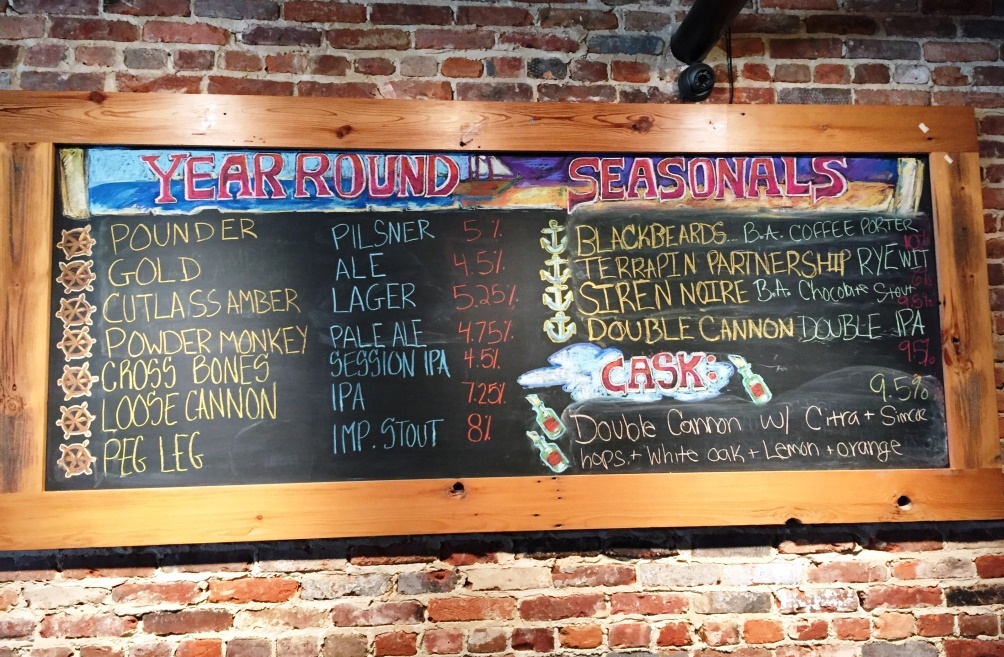 YEAR ROUND
POUNDER PILSNER 5%
GOLD ALE 4.5%
CUTLASS AMBER LAGER 5.25%
POWDER MONKEY PALE ALE 4.75%
CROSS BONES SESSION IPA 4.5%
LOOSE CANNON IPA 7.25%
PEG LEG IMP. STOUT 8%
SEASONALS
BLACKBEARDS... B.A. COFFEE PORTER
TERRAPIN PARTNERSHIP RYE WIT
SIREN NOIRE B.A. Chocolate Stout
DOUBLE CANNON DOUBLE IPA
9.5%
CASK:
9.5%
Double Cannon w/ Citra + Simcoe
hops + White oak + Lemon + orange